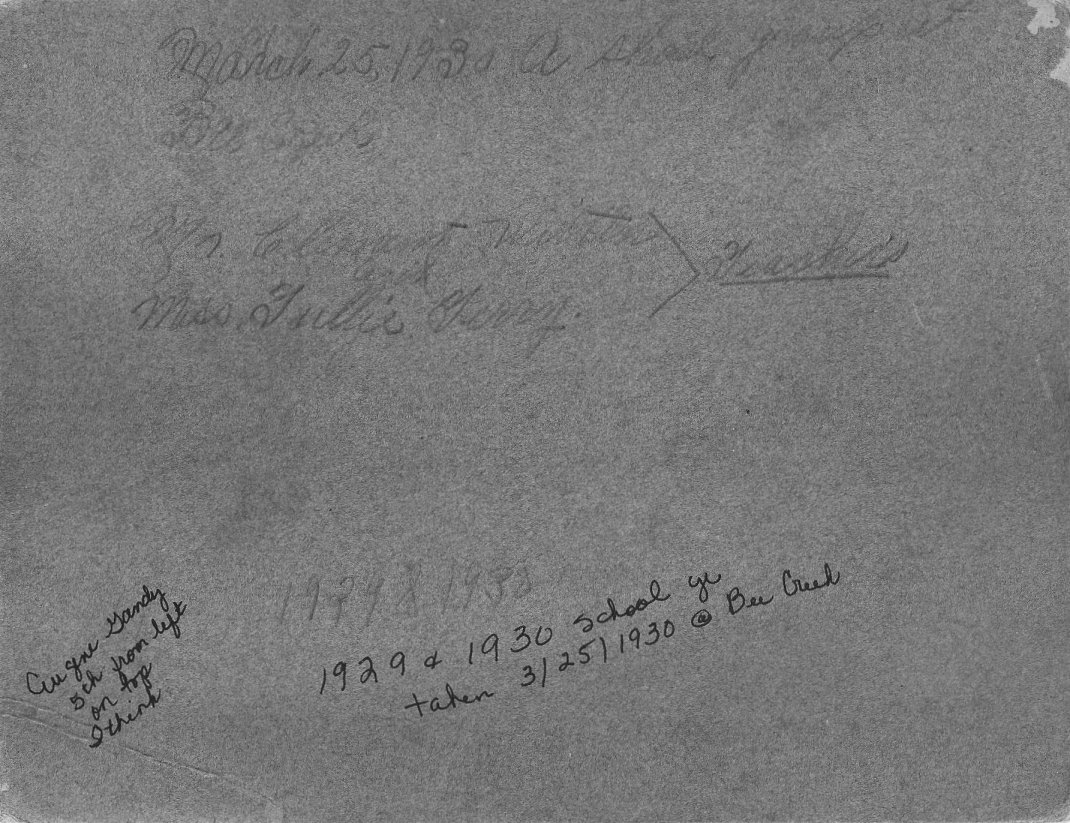 March 25, 1930 A school group at
Bee Creek
Mr. Clement
and
Miss. Tullie
Teachers
1929 & 1930
1929 & 1930 School yr
taken 3/25/1930 @ Bee Creek
Gandy
5th from left
on top
I think